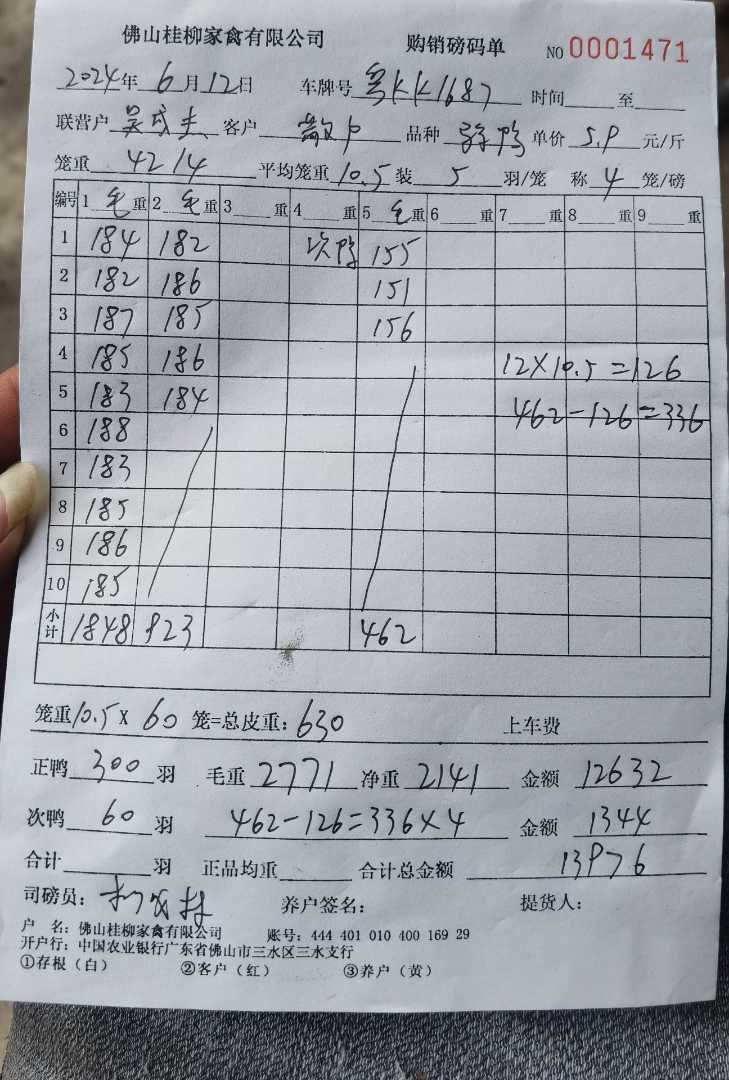 佛山桂柳家禽有限公司 购销磅码单 NO 0001471
2024年 6月12日 车牌号 粤KK1687 时间 至
联营户 吴成夫 客户 散户 品种 单价 5.9 元/斤
笼重 42 14 平均笼重 10.5 装 5 羽/笼 称 4 笼/磅
编号 1 毛 重 2 毛 重 3 重 4 重 5 毛 重 6 重 7 重 8 重 9 重
1 184 182 次鸭 155
2 182 186 151
3 187 185 156
4 185 186 12×10.5=126
5 183 184 462-126=336
6 188
7 183
8 185
9 186
10 185
小计 1848 923 462
笼重 10.5× 60 笼=总皮重: 630 上车费
正鸭 300 羽 毛重 2771 净重 2141 金额 12632
次鸭 60 羽 462-126=336×4 金额 1344
合计 羽 正品均重 合计总金额 13976
司磅员: 养户签名: 提货人:
户 名: 佛山桂柳家禽有限公司 账号: 444 401 010 400 169 29
开户行: 中国农业银行广东省佛山市三水区三水支行
①存根（白） ②客户（红） ③养户（黄）